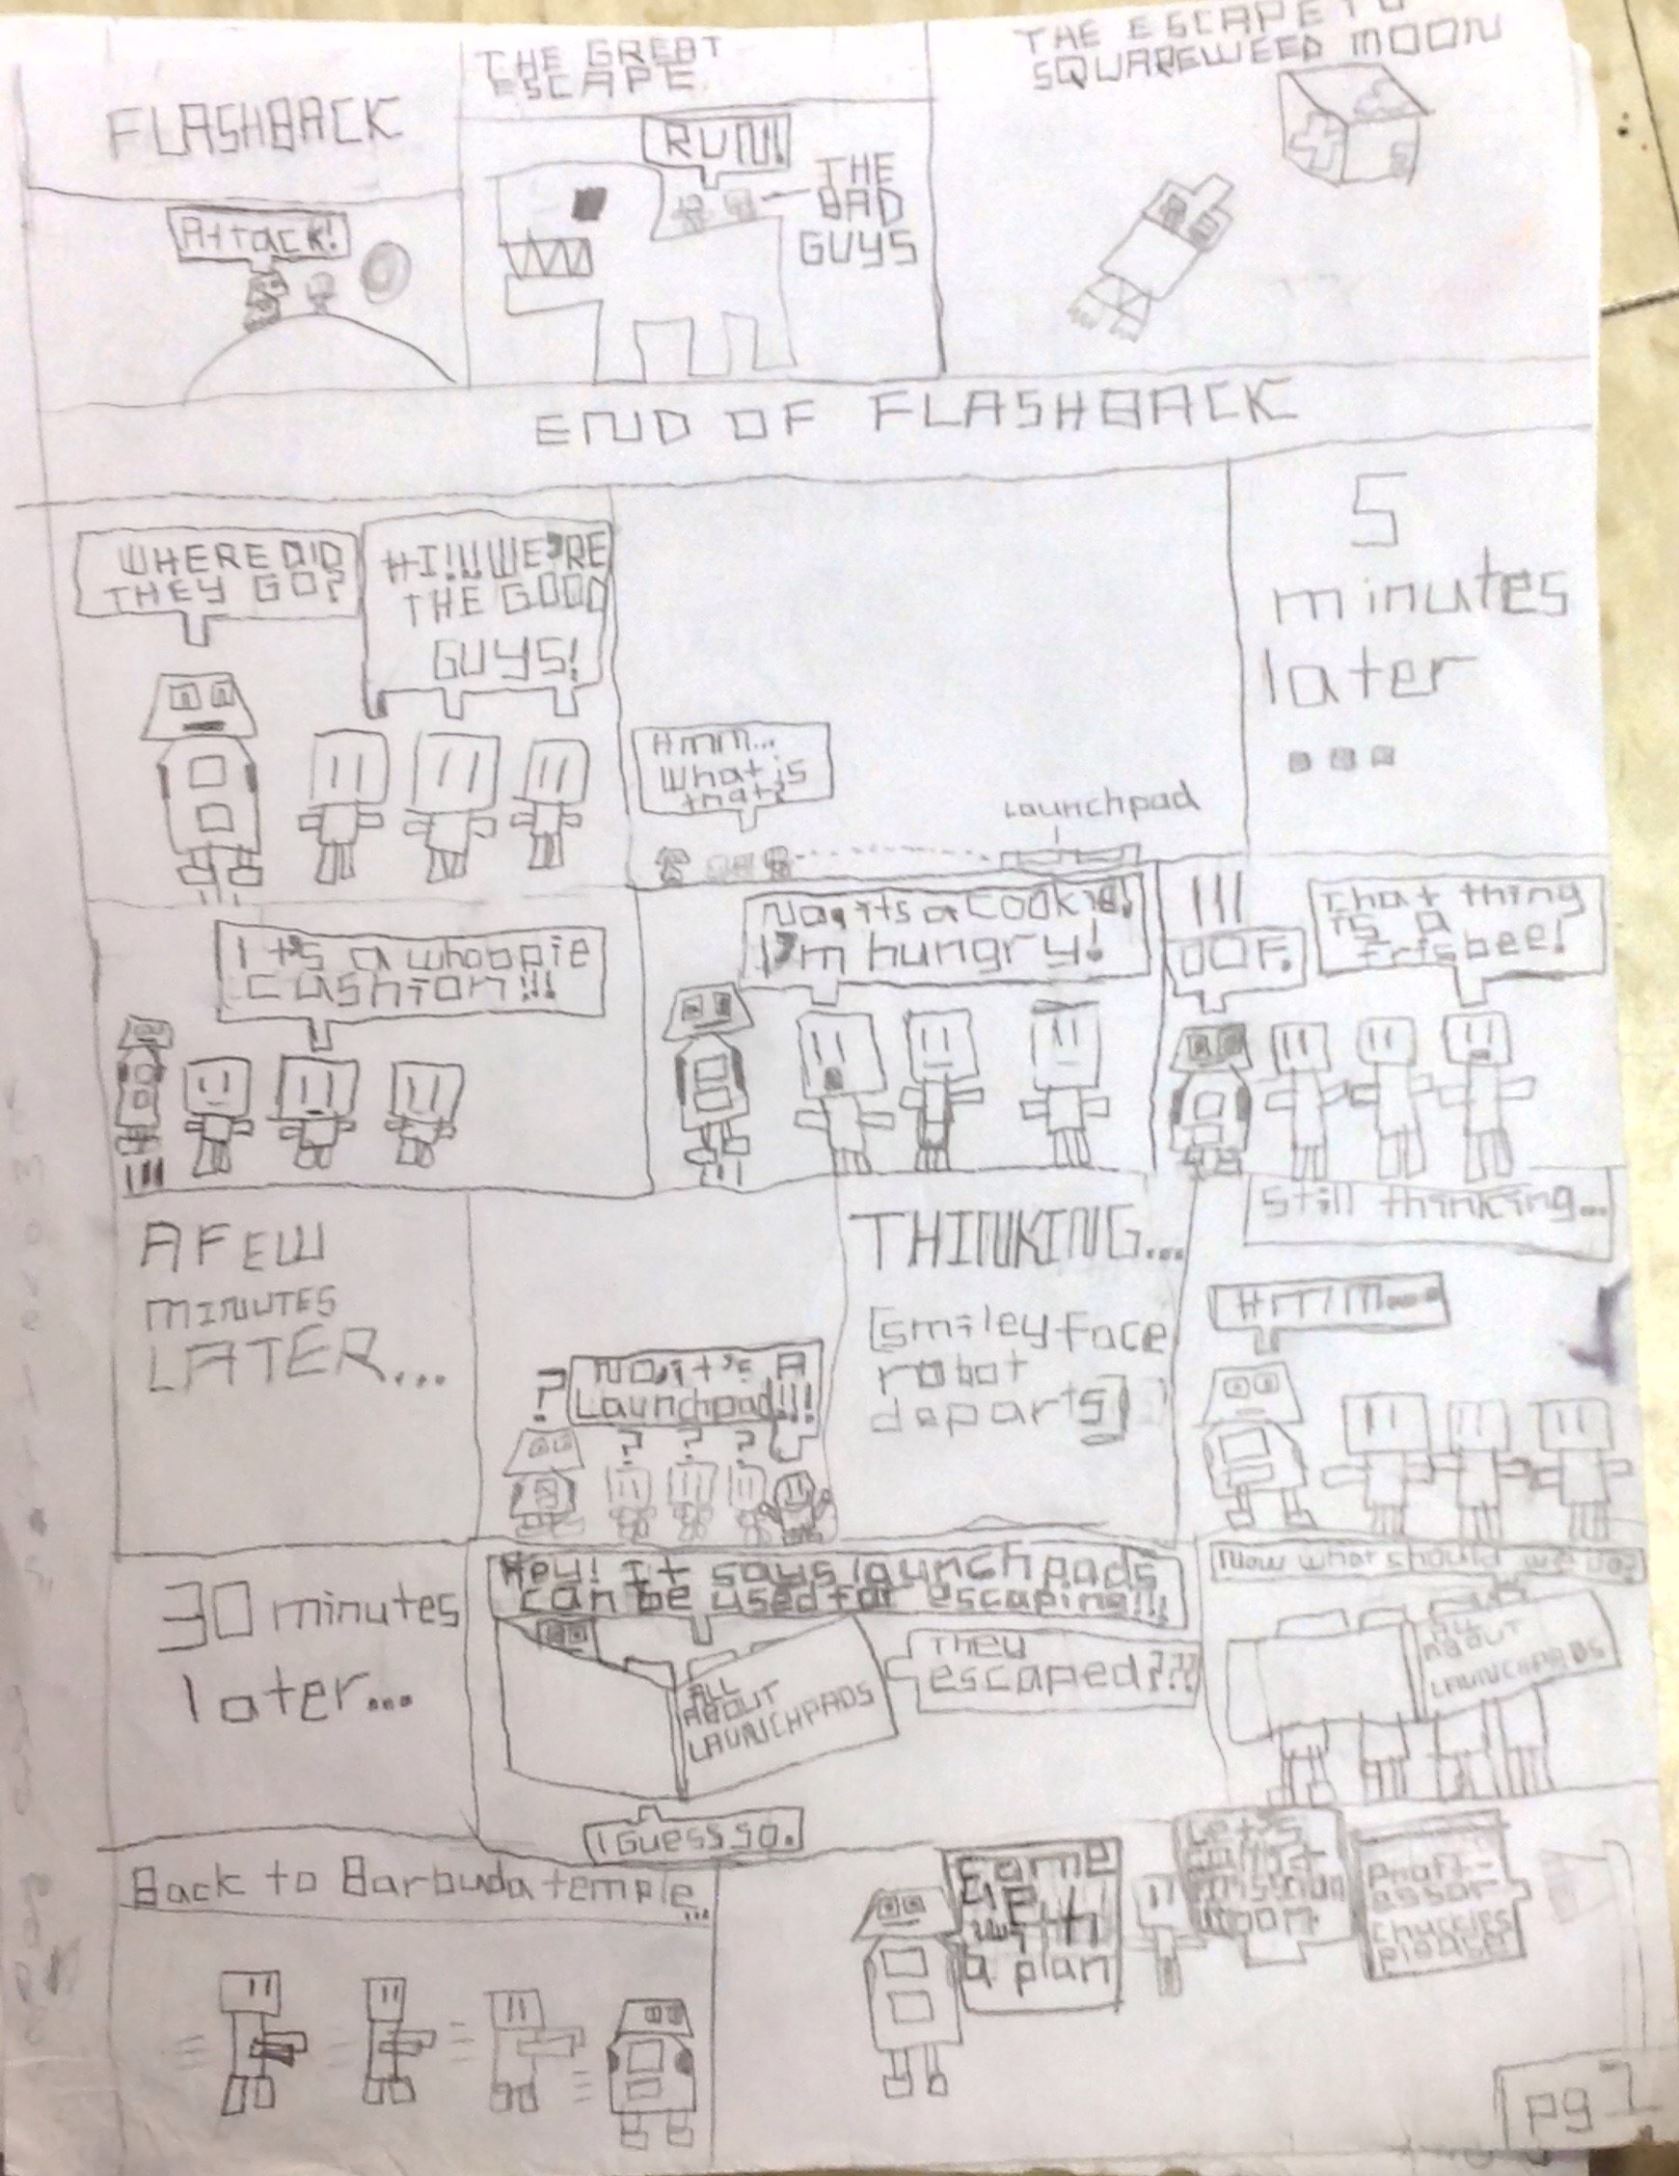 FLASHBACK
Attack!
THE GREAT
ESCAPE
RUN!!
THE
BAD
GUYS
THE ESCAPE TO
SQUAREWEED MOON
END OF FLASHBACK
WHERE DID
THEY GO?
HI!!! WE'RE
THE GOOD
GUYS!
Hmm...
What is
that?
Launchpad
5
minutes
later
...
It's a whoopie
cushion!!!
Na, its a cookie!
I'm hungry!
OOF.
That thing
is a
frisbee!
A FEW
MINUTES
LATER...
?
No, it's A
Launchpad!!!
? ? ?
THINKING...
[smiley face
robot
departs]
Still thinking...
Hmmm....
30 minutes
later...
Hey! It says launchpads
can be used for escaping!!!
ALL
ABOUT
LAUNCHPADS
They
escaped???
I Guess so.
Now what should we do?
ALL
ABOUT
LAUNCHPADS
Back to Barbuda temple
...
Come
UP
with
a plan
Let's
call
moon
chuckles
please
pg 7